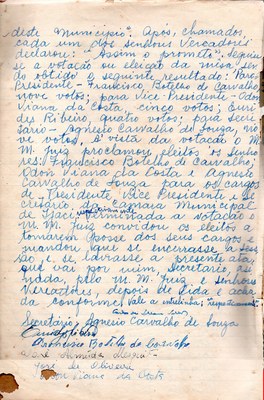 deste Municipio". Após, chamados,
cada um dos senhores Vereadores
declarou: "Assim o prometo". Seguiu-
se a votação ou eleição da mesa, sen-
do obtido o seguinte resultado: Para
Presidente - Francisco Botelho de Carvalho
nove votos; para Vice-Presidente - Odon
Viana da Costa, cinco votos; Euri-
des Ribeiro, quatro votos; para Secre-
tário - Agnesio Carvalho de Souza, no-
ve votos. À vista da votação o M.
M. Juiz proclamou eleitos os senho-
res: Francisco Botelho de Carvalho;
Odon Viana da Costa e Agnesio
Carvalho de Souza para os cargos
de Presidente, Vice Presidente e Se-
cretário, da Camara Municipal
de Ijaci. Terminada a votação o
M. M. Juiz convidou os eleitos a
tomarem posse dos seus cargos e
mandou que se encerrasse a ses-
são e se lavrasse a presente ata
que vai por mim, Secretário, assi-
nada, pelo M. M. Juiz e senhores
Vereadores, depois de lida e acha-
da conforme. Vale a entrelinha:
Secretário, Agnesio Carvalho de Souza
Botelho de Carvalho
José de Oliveira
Odon Viana da Costa